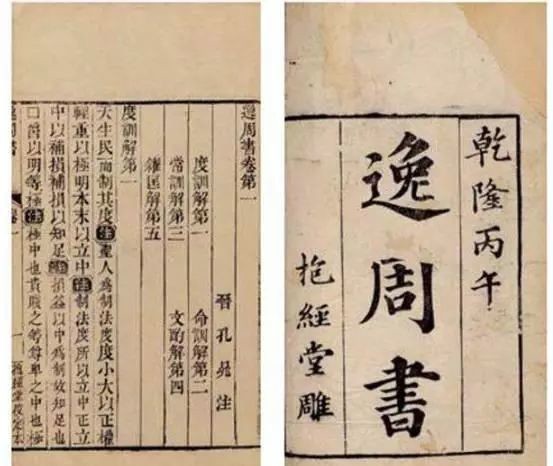 乾隆丙午
逸周書
抱經堂雕
逸周書卷第一
晉孔晁注
度訓解第一 命訓解第二
常訓解第三 文酌解第四
糴匡解第五
度訓解第一
天生民而制其度注聖人爲制法度度小大以正權
輕重以極明本末以立中注制法度所以立中正立
中以補損補損以知足注損益以中爲制故知足也
口爵以明等極注極中也貴賤之等尊卑之中也極
周書 卷一 一 抱經堂校定本